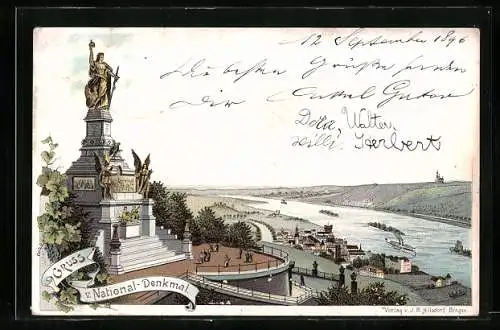 12 September 1896
Die besten Grüße senden
Dir Onkel Gustav
Walter,
Willi. Herbert
Gruss
v. National-Denkmal.
Verlag v. J. B. Hilsdorf Bingen